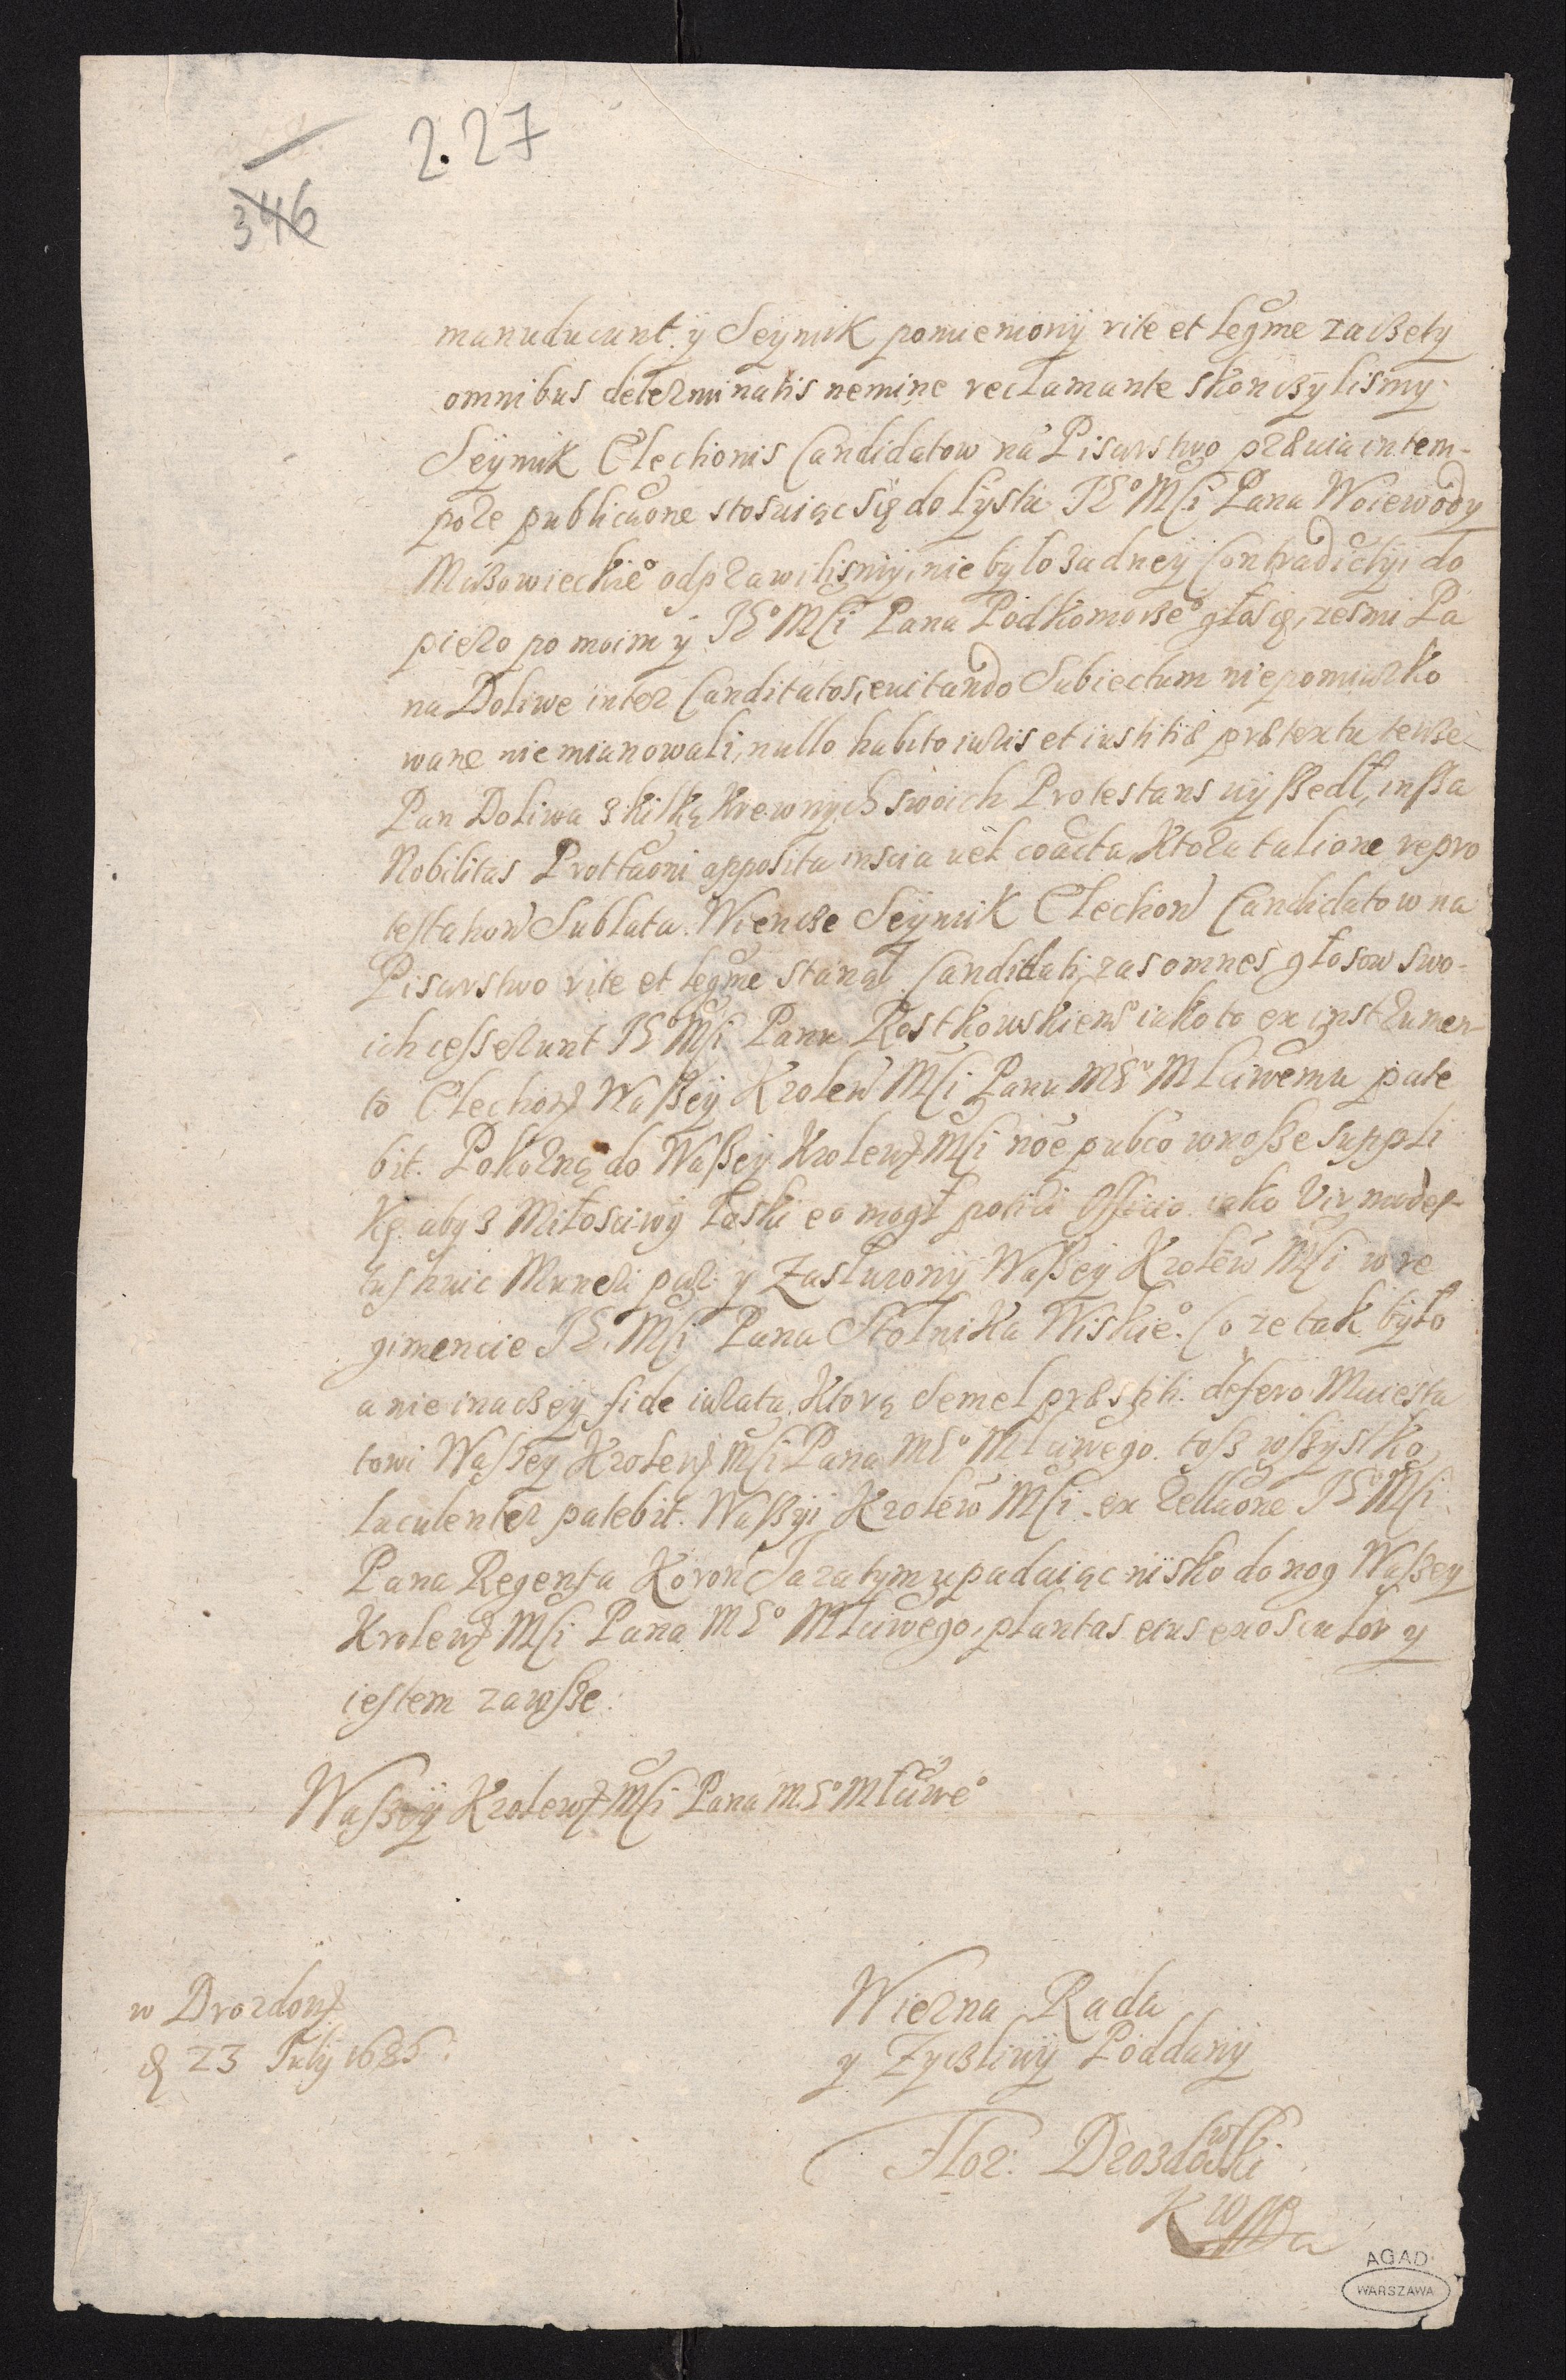 2.27
346
manuducunt. ÿ Seÿmik pomienionÿ rite et legme zaczety
omnibus determinatis nemine reclamante skonczÿlismy.
Seÿmik Electionis Candidatow na Pisarstwo prævia in tem-
pore publicaone stosuiąc się do Lÿstu JEo Mści Pana Woiewody
Mazowieckieo odprawilismÿ, nie bÿlo zadneÿ Contradictÿi do
piero po moim ÿ JEo Mści Pana Podkomorzeo głosię, zesmi Pa
na Doliwe inter Canditatos, euitando Subiectum niepomiarko
wane nie mianowali, nullo habito iuris et iustitiæ prætextu tenze
Pan Doliwa z kilką Krewnÿch swoich Protestans wÿszedl, inssa
Nobilitas Prottaoni apposita inscia uel coacta, Ktora talione repro
testation Sublata. Wiencze Seÿmik Election Candidatow na
Pisarstwo rite et legme stanął. Candidati zas omnes głosow swo-
ich cesserunt JEo Mści Panu Rostkowskiemu iako to ex instrumen-
to Election Waszeÿ Krolew Mści Panu MEu Mlciwemu pate
bit. Pokorną do Waszeÿ Krolew Mści noe pubco wnosze suppli
Kę. aby z Miłosciwÿ Łaski eo mogł potiri Officio iako Vir modes-
tus huic Muneri par. y Zasłuzonÿ Waszeÿ Krolew Mści w re
gimencie JE. Mści Pana Stolnika Wiskieo. Co ze tak bÿło
a nie inaczeÿ fide iurata, Ktorą semel præstiti. defero Maiesta
towi Waszeÿ Krolew Mści Pana MEo Mlciwego. tosz wszÿstko
luculenter patebit. Waszÿi Krolew Mści. ex Rellaone JEo Mści
Pana Regenta Koron Ia zatÿm upadaiąc nisko do nog Waszeÿ
Krolew Mści Pana MEo Mlciwego, plantas eius exosculor y
iestem zawsze.
Waszeÿ Krolew Mści Pana M.Eo Mlciweo
w Drozdow
d 23 Julÿ 1685.
Wierna Rada
y Zyczliwÿ Poddanÿ
Flor: Drozdowski
AGAD
WARSZAWA